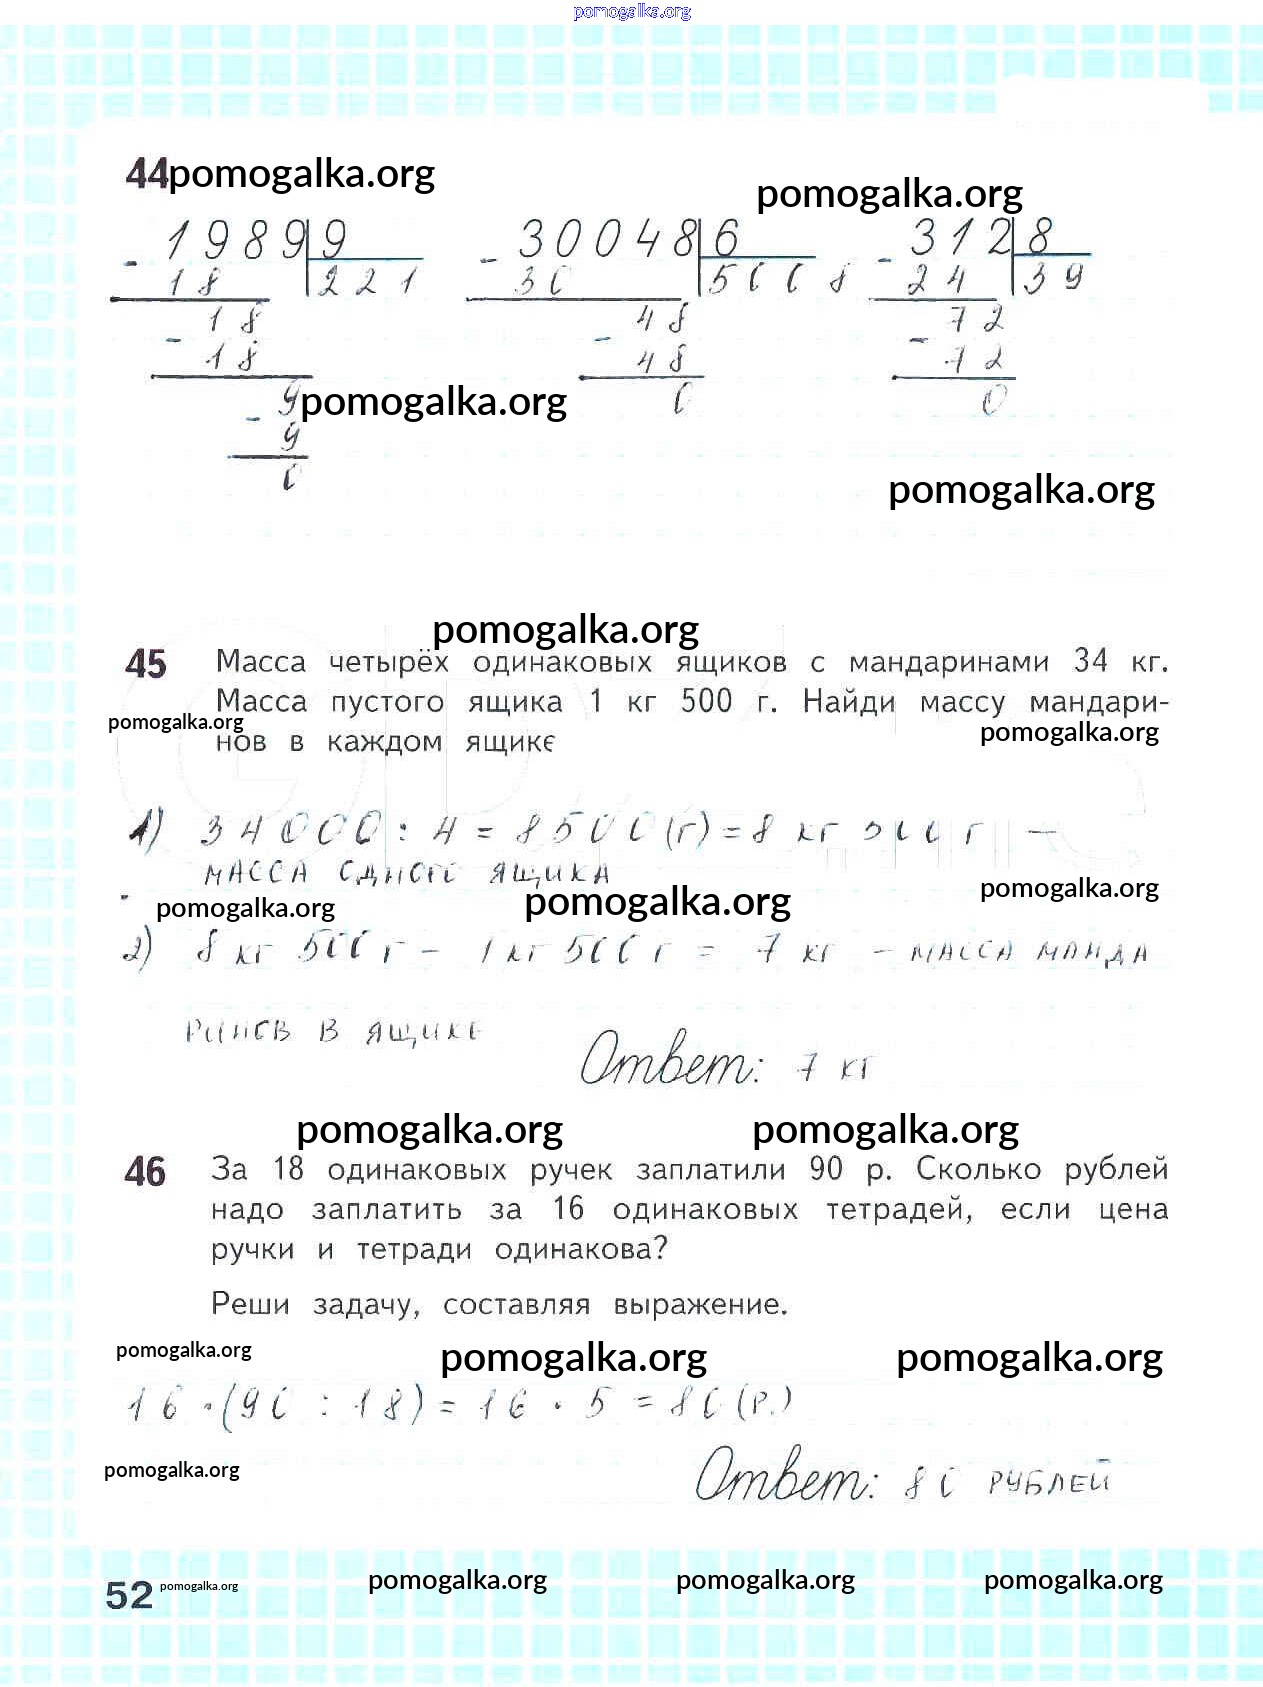 pomogalka.org
44 pomogalka.org
pomogalka.org
1989 9 30048 6 312 8
- 18 221 - 30 5008 - 24 39
18 48 72
- 18 - 48 - 72
9 0 0
pomogalka.org
- 9
0
pomogalka.org
pomogalka.org
45 Масса четырёх одинаковых ящиков с мандаринами 34 кг.
Масса пустого ящика 1 кг 500 г. Найди массу мандари-
pomogalka.org
pomogalka.org
нов в каждом ящике
1) 34000 : 4 = 8500 (г) = 8 кг 500 г –
масса одного ящика
pomogalka.org
pomogalka.org pomogalka.org
2) 8 кг 500 г – 1 кг 500 г = 7 кг – масса манда
ринов в ящике
Ответ: 7 кг
pomogalka.org pomogalka.org
46 За 18 одинаковых ручек заплатили 90 р. Сколько рублей
надо заплатить за 16 одинаковых тетрадей, если цена
ручки и тетради одинакова?
Реши задачу, составляя выражение.
pomogalka.org pomogalka.org pomogalka.org
16 · (90 : 18) = 16 · 5 = 80 (р.)
pomogalka.org
Ответ: 80 рублей
52 pomogalka.org pomogalka.org pomogalka.org pomogalka.org